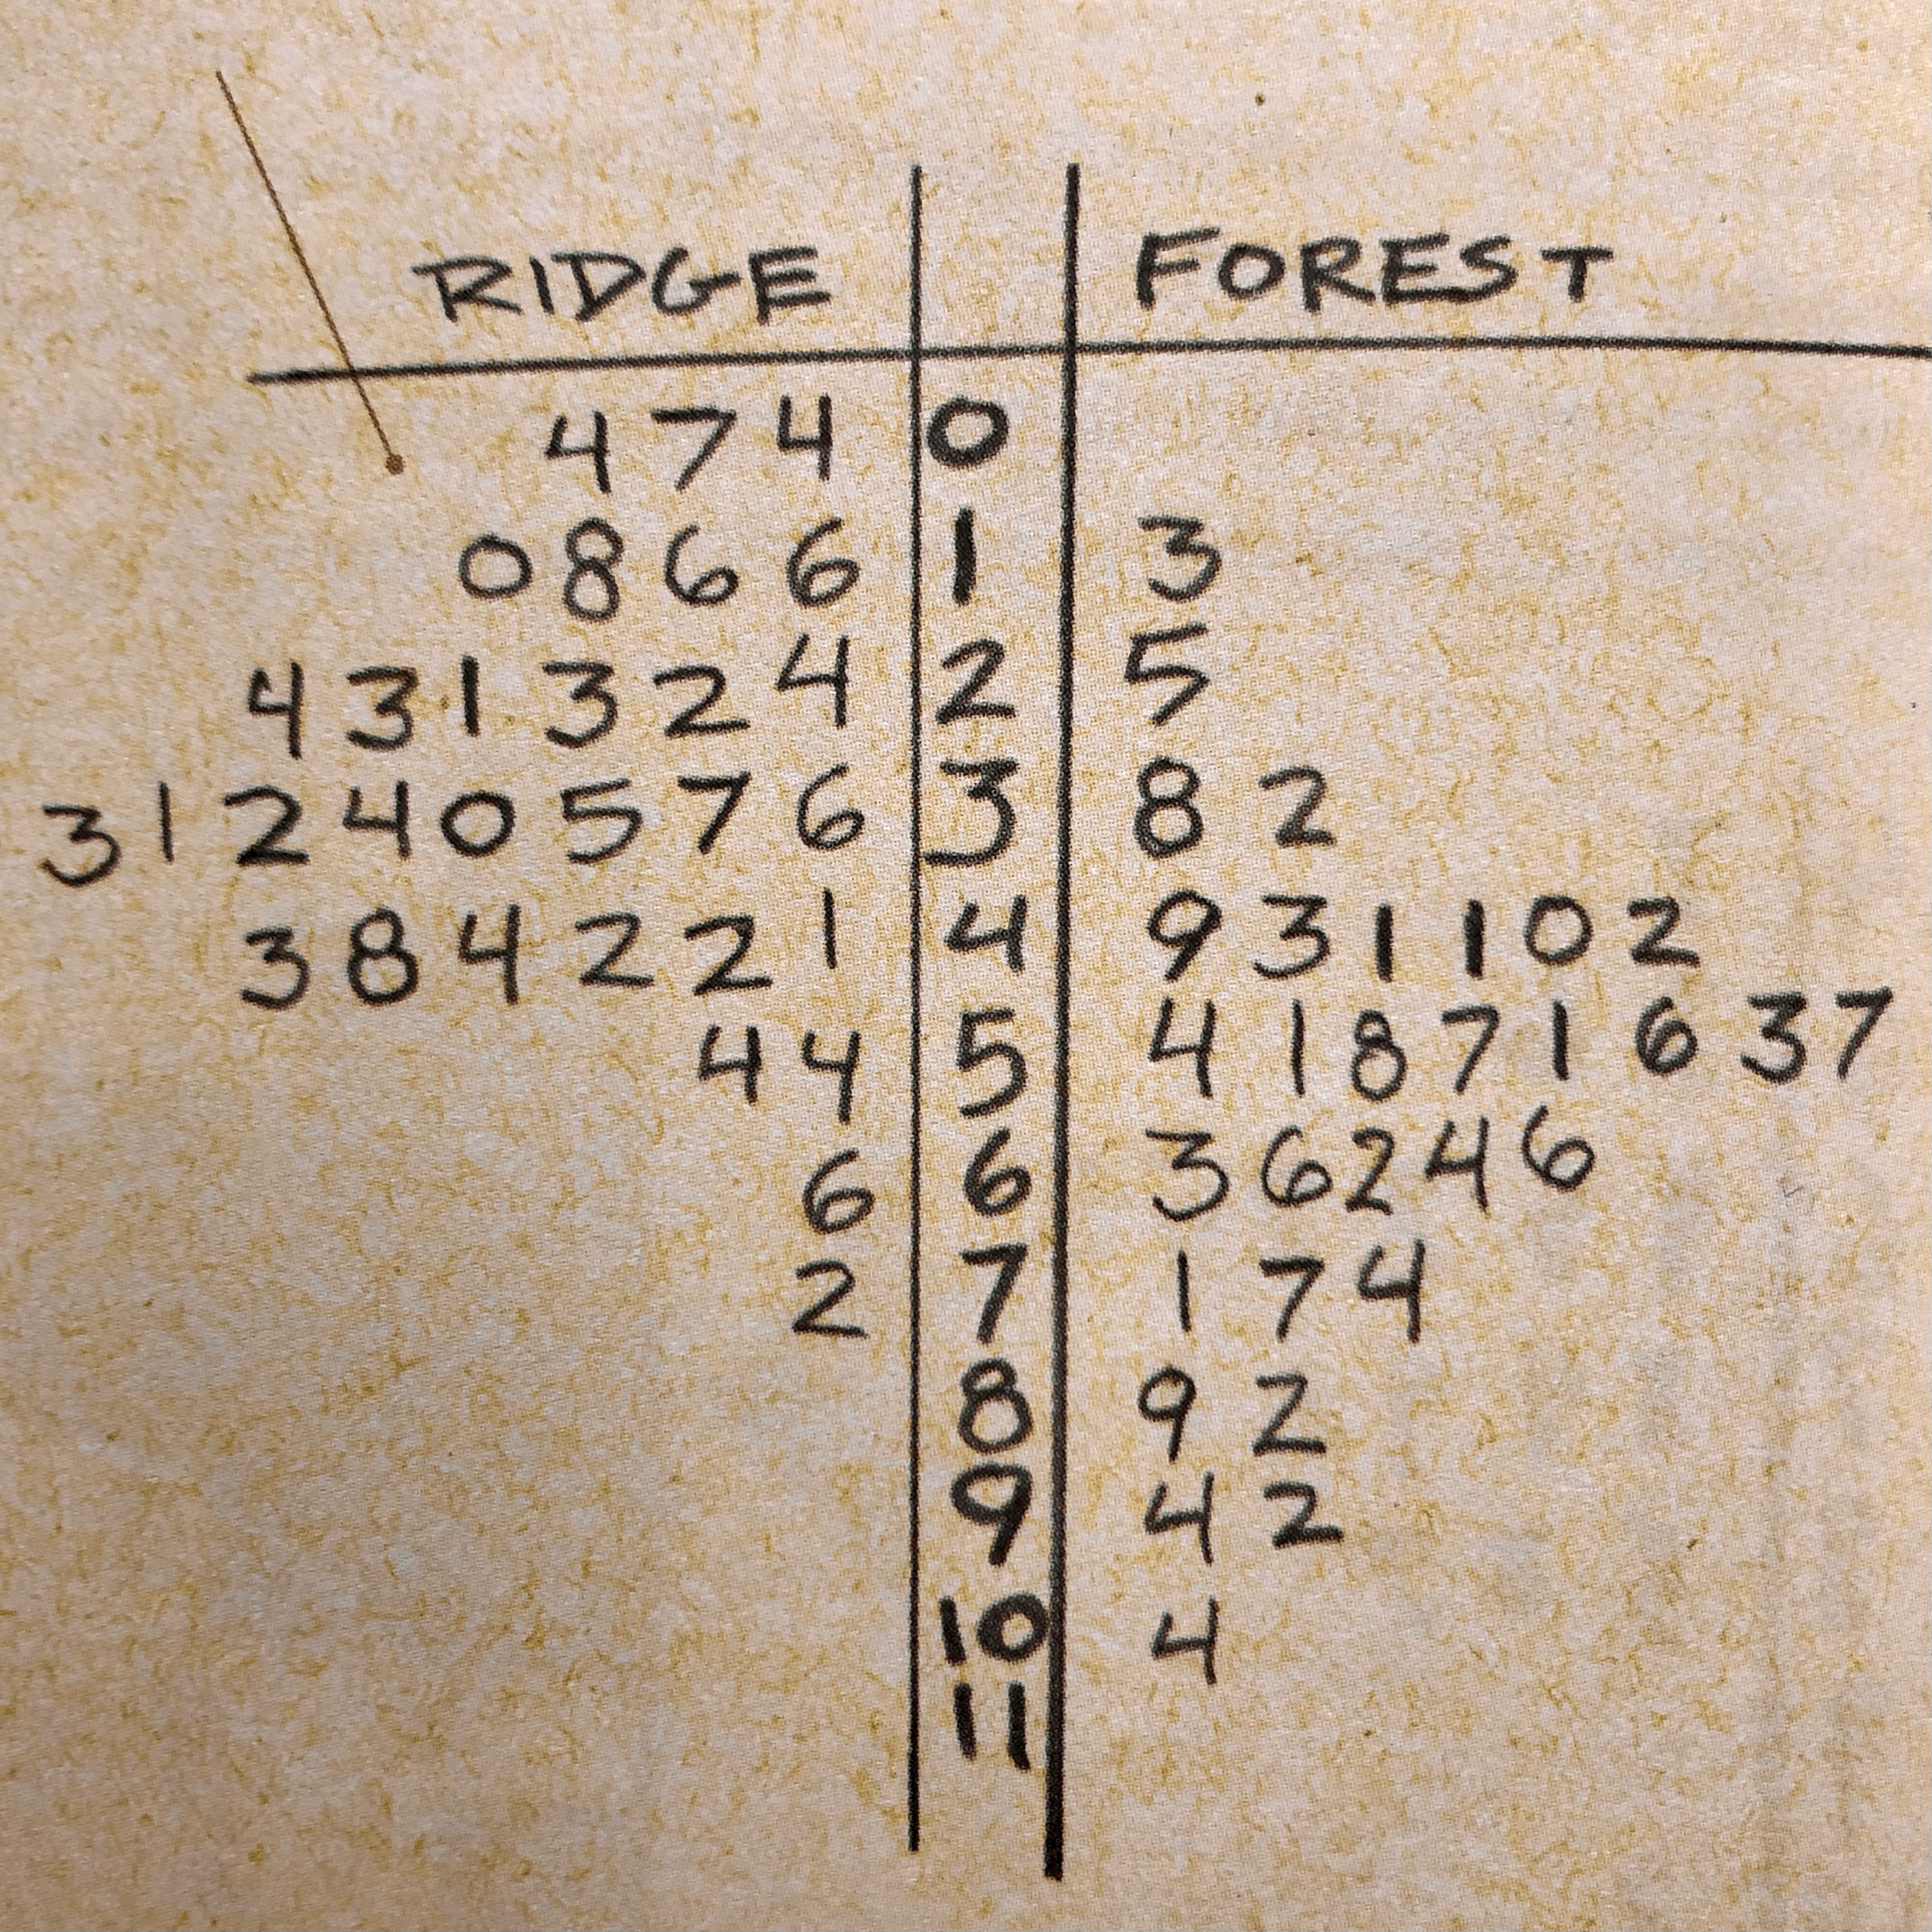 RIDGE FOREST
4 7 4 0
0 8 6 6 1 3
4 3 1 3 2 4 2 5
3 1 2 4 0 5 7 6 3 8 2
3 8 4 2 2 1 4 9 3 1 1 0 2
4 4 5 4 1 8 7 1 6 3 7
6 6 3 6 2 4 6
2 7 1 7 4
8 9 2
9 4 2
10 4
11